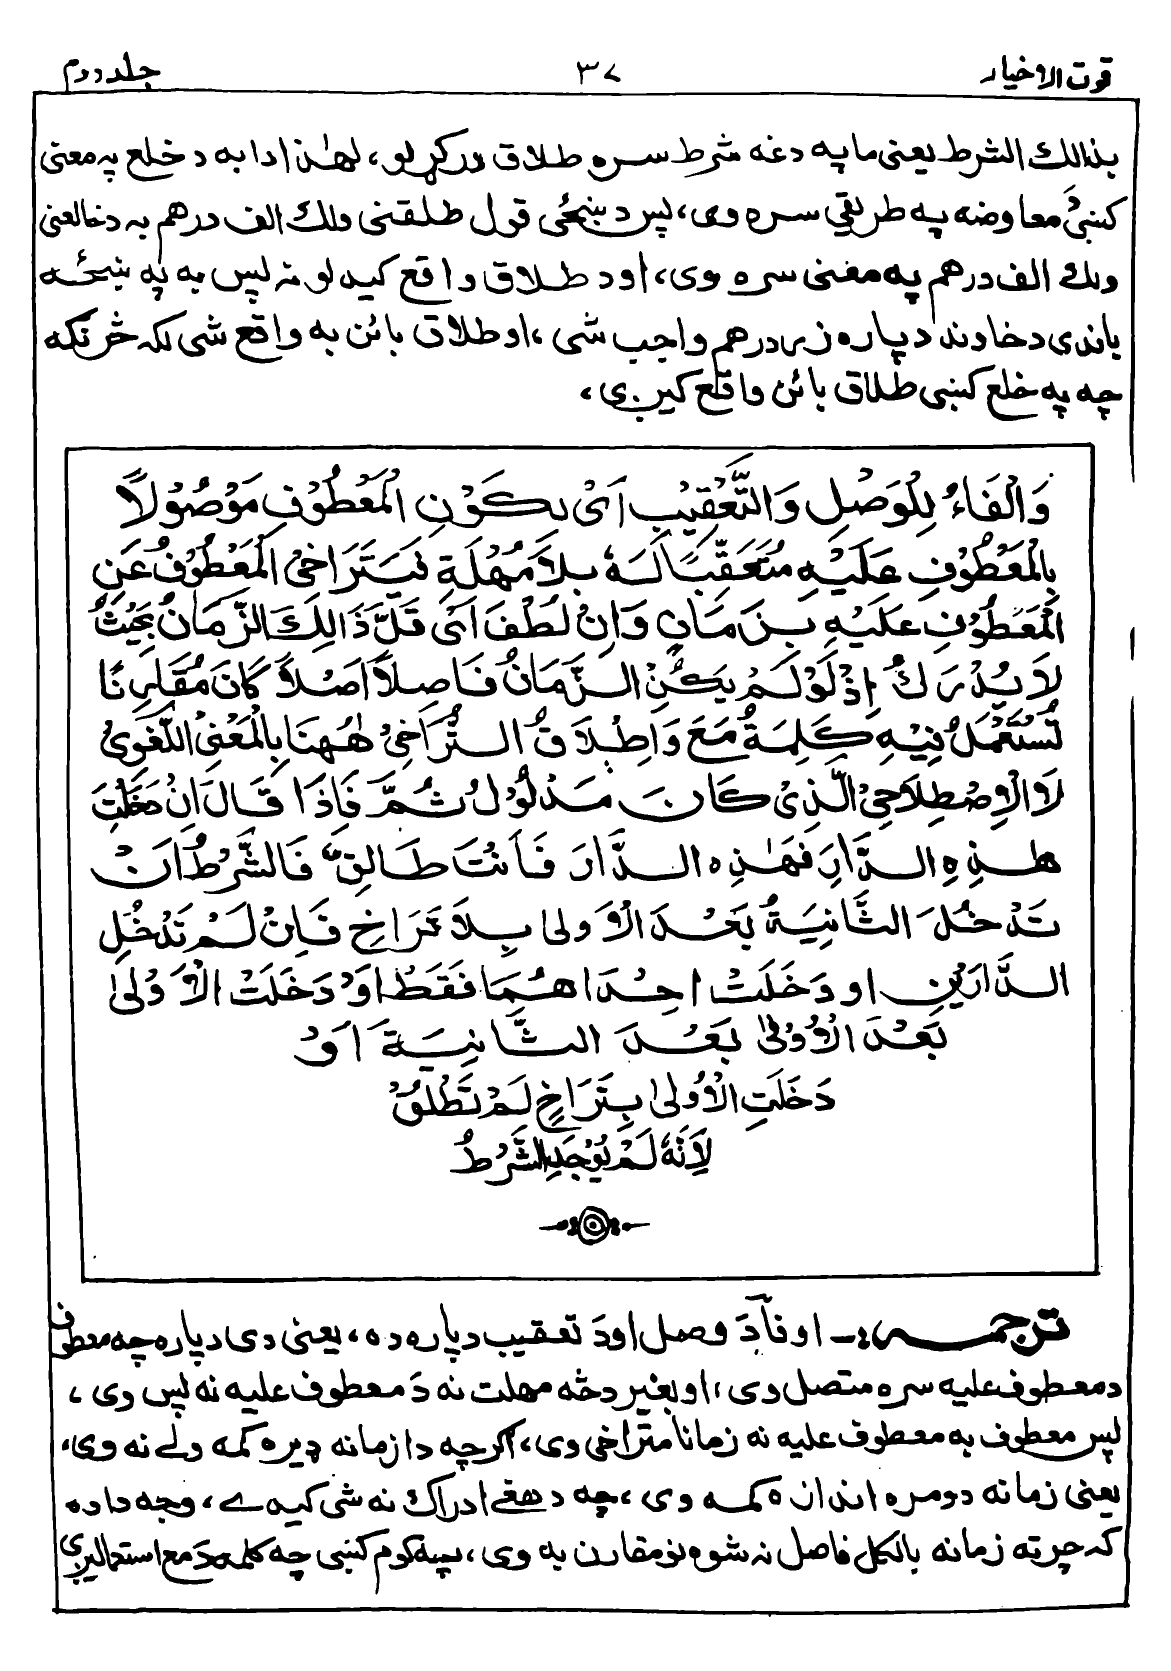 قوت الاخیار ۳۷ جلد دوم
بذالك الشرط یعنی ما په دغه شرط سره طلاق ورکړلو، لهٰذا دا به د خلع په معنی
کښې معاوضه په طریقې سره وی، پس د ښځې قول طلقنی ولك الف درهم به د خالعنی
ولك الف درهم په معنی سره وی، او د طلاق واقع کیدلو نه پس به په ښځه
باندې د خاوند دپاره زر درهم واجب شی، او طلاق بائن به واقع شی لکه څرنګه
چه په خلع کښې طلاق بائن واقع کیږی،
وَالْفَاءُ لِلْوَصْلِ وَالتَّعْقِيْبِ اَیْ يَكُوْنِ الْمَعْطُوْفِ مَوْصُوْلًا
بِالْمَعْطُوْفِ عَلَيْهِ مُتَعَقِّبًا لَهٗ بِلَا مُهْلَةٍ فَيَتَرَاخَیُ الْمَعْطُوْفُ عَنِ
الْمَعْطُوْفِ عَلَيْهِ بِزَمَانٍ وَاِنْ لَطُفَ اَیْ قَلَّ ذَالِكَ الزَّمَانُ بِحَيْثُ
لَا يُدْرَكُ اِذْ لَوْ لَمْ يَكُنِ الزَّمَانُ فَاصِلًا اَصْلًا كَانَ مُقَارِنًا
تُسْتَعْمَلُ فِيْهِ كَلِمَةُ مَعَ وَاِطْلَاقُ التُّرَاخِیْ هٰهُنَا بِالْمَعْنَی اللُّغَوِیْ
لَا الْاِصْطِلَاحِیْ الَّذِیْ كَانَ مَدْلُوْلُ ثُمَّ فَاِذَا قَالَ اِنْ دَخَلْتِ
هٰذِهِ الدَّارَ فَهٰذِهِ الدَّارَ فَاَنْتَ طَالِقٌ فَالشَّرْطُ اَنْ
تَدْخُلَ الثَّانِيَةُ بَعْدَ الْاَوْلٰی بِلَا تَرَاخٍ فَاِنْ لَمْ تَدْخُلِ
الدَّارَيْنِ اَو دَخَلَتْ اِحْدَاهُمَا فَقَطْ اَوْ دَخَلَتْ الْاُوْلٰی
بَعْدَ الْاُوْلٰی بَعْدَ الثَّانِيَةَ اَوْ
دَخَلَتِ الْاُوْلٰی بِتَرَاخٍ لَمْ تَطْلُقْ
لِاَنَّهٗ لَمْ يُوْجَدِ الشَّرْطُ
ترجمه:- او فاء دَ وصل او دَ تعقیب دپاره ده، یعنی دی دپاره چه معطوف
د معطوف علیه سره متصل دی، او بغیر دڅه مهلت نه دَ معطوف علیه نه پس وی،
پس معطوف به معطوف علیه نه زماناً متراخی وی، اګر چه دا زمانه ډیره کمه ولے نه وی،
یعنی زمانه دومره اندازه کمه وی، چه د هغے ادراك نه شی کیدے، وجه دا ده
که چرته زمانه بالکل فاصل نه شوه نو مقارن به وی، په کوم کښې چه کلمه دَ مع استعمالیږی